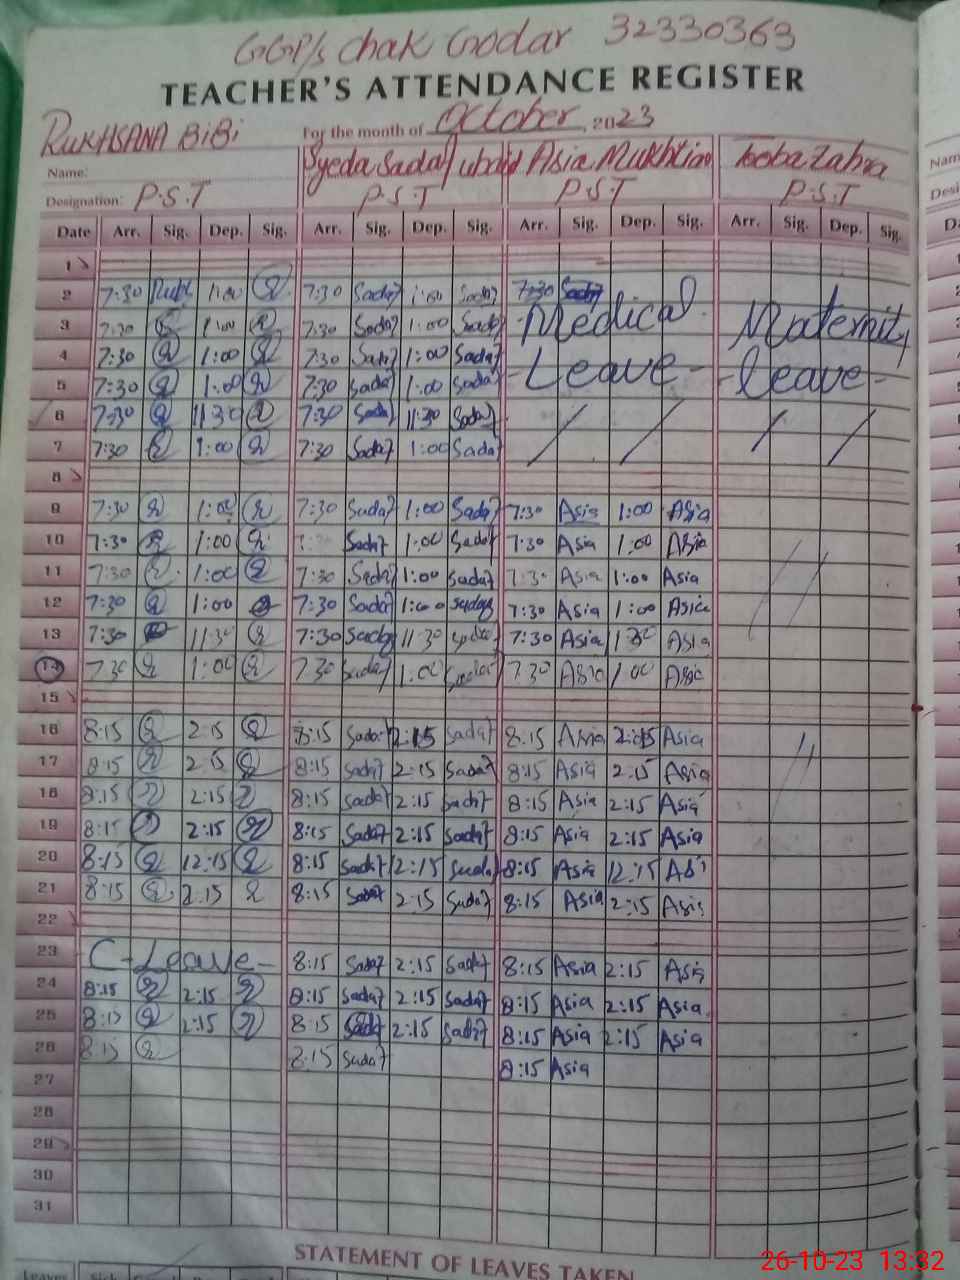 GGP/s Chak Godar 32330363
TEACHER'S ATTENDANCE REGISTER
RUKHSANA BiBi For the month of October, 2023
Name: Syeda Sadaf Asia Mukhtiar Zahra
Designation: P.S.T P.S.T P.S.T P.S.T
Date Arr. Sig. Dep. Sig. Arr. Sig. Dep. Sig. Arr. Sig. Dep. Sig. Arr. Sig. Dep. Sig.
1
2 7:30 1:00 7:30 Sadaf 1:00 Sadaf 7:30 Sadaf
3 7:30 1:00 7:30 Sadaf 1:00 Sadaf Medical Maternity
4 7:30 1:00 7:30 Sadaf 1:00 Sadaf
5 7:30 1:00 7:30 Sadaf 1:00 Sadaf Leave - leave -
6 7:30 11:30 7:30 Sadaf 11:30 Sadaf
7 7:30 1:00 7:30 Sadaf 1:00 Sadaf
8
9 7:30 1:00 7:30 Sadaf 1:00 Sadaf 7:30 Asia 1:00 Asia
10 7:30 1:00 Sadaf 1:00 Sadaf 7:30 Asia 1:00 Asia
11 7:30 1:00 7:30 Sadaf 1:00 Sadaf 7:30 Asia 1:00 Asia
12 7:30 1:00 7:30 Sadaf 1:00 Sadaf 7:30 Asia 1:00 Asia
13 7:30 11:30 7:30 Sadaf 11:30 7:30 Asia 11:30 Asia
14 7:30 1:00 7:30 Sadaf 1:00 Sadaf 7:30 Asia 1:00 Asia
15
16 8:15 2:15 8:15 Sadaf 2:15 Sadaf 8:15 Asia 2:15 Asia
17 8:15 2:15 8:15 Sadaf 2:15 Sadaf 8:15 Asia 2:15 Asia
18 8:15 2:15 8:15 Sadaf 2:15 Sadaf 8:15 Asia 2:15 Asia
19 8:15 2:15 8:15 Sadaf 2:15 Sadaf 8:15 Asia 2:15 Asia
20 8:15 12:15 8:15 Sadaf 12:15 Sadaf 8:15 Asia 12:15
21 8:15 2:15 8:15 Sadaf 2:15 Sadaf 8:15 Asia 2:15 Asia
22
23 C-Leave- 8:15 Sadaf 2:15 Sadaf 8:15 Asia 2:15 Asia
24 8:15 2:15 8:15 Sadaf 2:15 Sadaf 8:15 Asia 2:15 Asia
25 8:15 2:15 8:15 Sadaf 2:15 Sadaf 8:15 Asia 2:15 Asia
26 8:15 8:15 Sadaf 8:15 Asia
27
28
29
30
31
STATEMENT OF LEAVES TAKEN
26-10-23 13:32